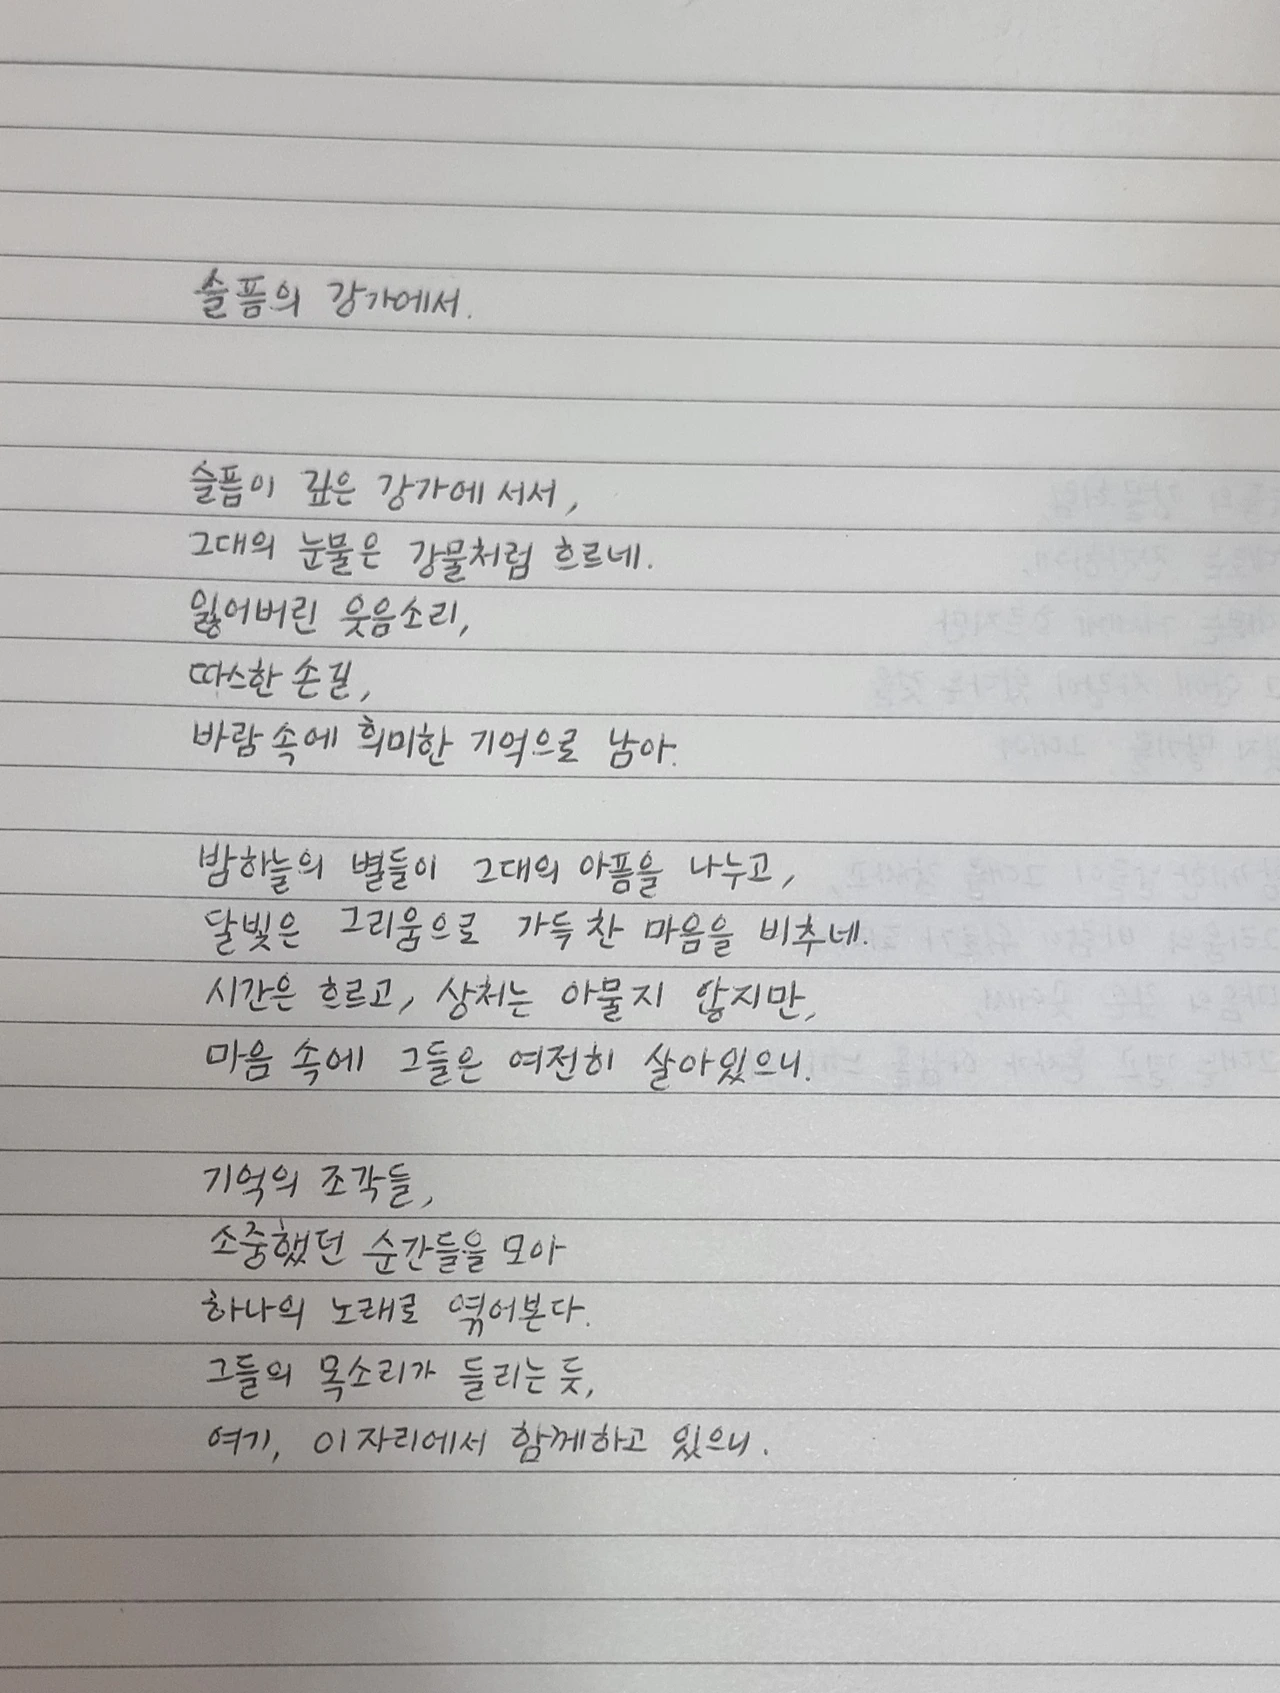 슬픔의 강가에서.
슬픔이 깊은 강가에 서서,
그대의 눈물은 강물처럼 흐르네.
잃어버린 웃음소리,
따스한 손길,
바람 속에 희미한 기억으로 남아.
밤하늘의 별들이 그대의 아픔을 나누고,
달빛은 그리움으로 가득 찬 마음을 비추네.
시간은 흐르고, 상처는 아물지 않지만,
마음 속에 그들은 여전히 살아있으니.
기억의 조각들,
소중했던 순간들을 모아
하나의 노래로 엮어본다.
그들의 목소리가 들리는 듯,
여기, 이 자리에서 함께하고 있으니.